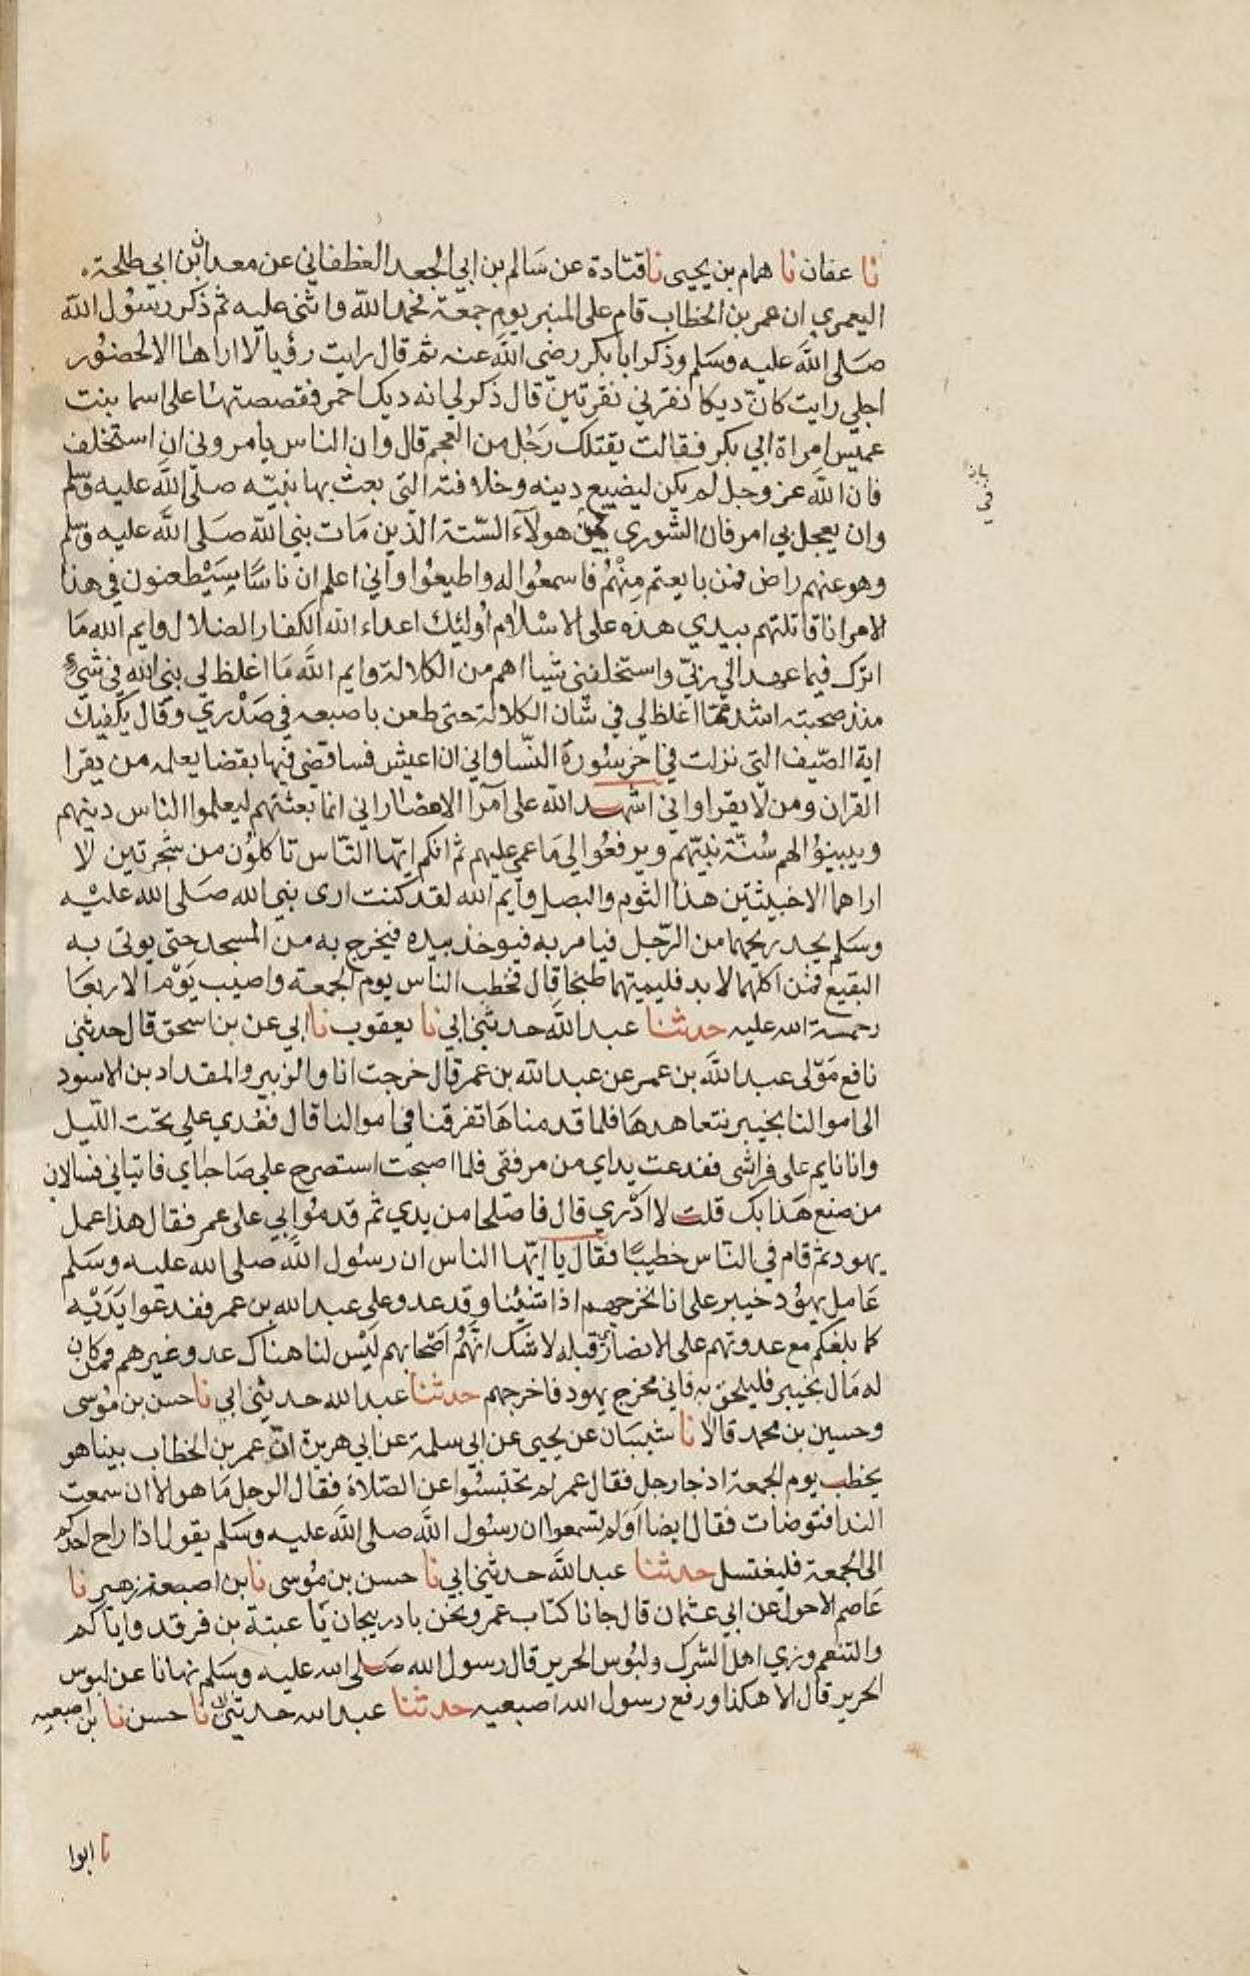 نا عفان نا همام بن يحيى نا قتادة عن سَالم بن ابي الجعد الغطفاني عن معدان بن ابي طلحة
اليعمري ان عمر بن الخطاب قام على المنبر يوم جمعة فحمد الله واثنى عليه ثم ذكر رسُول الله
صَلى اللّه عليه وسَلم وذكر ابا بكر رضى اللّه عنه ثم قال رايت رؤيا لا اراها الا لحضوُر
اجلي رايت كانّ ديكا نقرني نقرتين قال ذكر لي انه ديك احمر فقصصتها على اسما بنت
عميس امراة ابي بكر فقالت يقتلك رَجُل من العجم قال وان الناس يامروني ان استخلف
فان اللّه عز وجل لم يكن ليضيع دينه وخلافته التى بعث بها نبيّه صلّى اللّه عليه وسلم
وان يعجل بي امر فان الشورى في هولآء السّتة الذين مَات نبي اللّه صَلى اللّه عليه وسلم
وهو عنهم راض فمن بايعتم مِنْهُمْ فاسمعُوا له واطيعُوا واني اعلم ان ناسًا سيَطعنون في هذا
الامر انا قاتلتهم بيدي هذه على الاسْلام أولئك اعداء الله الكفار الضلال وايم الله مَا
اترك فيما عهد الي ربّي واستخلفنى شيا اهم من الكلالة وايم اللّه مَا اغلظ لي نبي الله في شيْ
منذ صحبته اشد ممّا اغلظ لي في شان الكلالة حتى طعن باصبعه في صَدْري وقال يكفيك
اية الصّيف التى نزلت في اخر سُورة النّسا واني ان اعيش فساقضي فيها بقضا يعلمه من يقرا
القران ومن لا يقرا واني اشهد الله على امرآ الامصار اني انما بعثتهم ليعلموا الناس دينهم
ويبينوُا لهم سُنّة نبيّهم ويرفعُوا لي مَا عمي عليهم ثم انكم ايّها النّاس تاكلوُن من شجرتين لا
اراهما الا خبيثتين هذا الثوم والبصل وايم الله لقد كنت ارى نبي الله صَلى الله عليْه
وسَلم يجد ريحهما من الرّجل فيامر به فيوخذ بيده فيخرج به من المسجد حتى يوتى به
البقيع فمن اكلهما لا بد فليميتهما طبخا قال فخطب الناس يوم الجمعة واصيب يَوْم الاربعَا
رحمة الله عليه حدثنا عبد اللّه حدثني ابي نا يعقوب نا ابي عن بن اسحق قال حدثني
نافع مَوْلى عبد اللّه بن عمر عن عبد الله بن عمر قال خرجت انا والزبير والمقداد بن الاسود
الى اموالنا بخيبر نتعاهدهَا فلما قدمناهَا تفرقنا في اموالنا قال فعُدي علي تحت اللّيل
وانا نايم على فراشى ففدعت يداي من مرفقي فلما اصبحت استصرح علي صَاحباي فاتياني فسالان
من صنع هَذا بك قلت لا ادْري قال فاصلحا من يدي ثم قدموُا بي على عمر فقال هذا عمل
يهود ثم قام في النّاس خطيبًا فقال يا ايّها الناس ان رسوُل اللّه صَلى الله عليه وسَلم
عَامل يهوُد خيبر على انا نخرجهم اذا شئنا وقد عدو على عبد الله بن عمر ففدعوا يَدَيْه
كما بلغكم مع عدوتهم على الانصار قبله لا شك انّهُم اصْحابهم ليْس لنا هناك عدو غيرهم فمن كان
له مَال بخيبر فليلحق به فاني مخرج يهود فاخرجهم حدثنا عبد الله حدثني ابي نا حسن بن موُسى
وحسين بن محمد قالا نا شيبان عن يحيى عن ابي سلمة عن ابي هريرة انّ عمر بن الخطاب بينا هو
يخطب يوم الجمعة اذ جا رجل فقال عمر لم تحتبسُوا عن الصّلاة فقال الرجل مَا هو الا ان سمعت
الندا فتوضات فقال ايضا اوَلم تسمعوا ان رسُول اللّه صلى اللّه عليه وسَلم يقول اذا راح احدكم
الى الجمعة فليغتسل حدثنا عبد اللّه حدثني ابي نا حسن بن موُسى نا زهير نا
عَاصم الاحول عن ابي عثمان قال جانا كتاب عمر ونحن باذربيجان يَا عتبة بن فرقد واياكم
والتنعم وزي اهل الشرك ولبُوس الحرير قال رسول الله صَلى الله عليه وسَلم نهانا عن لبوس
الحرير قال الا هكذا ورفع رسول الله اصبعيه حدثنا عبد الله حدثني ابي نا حسن نا
نا ابوا